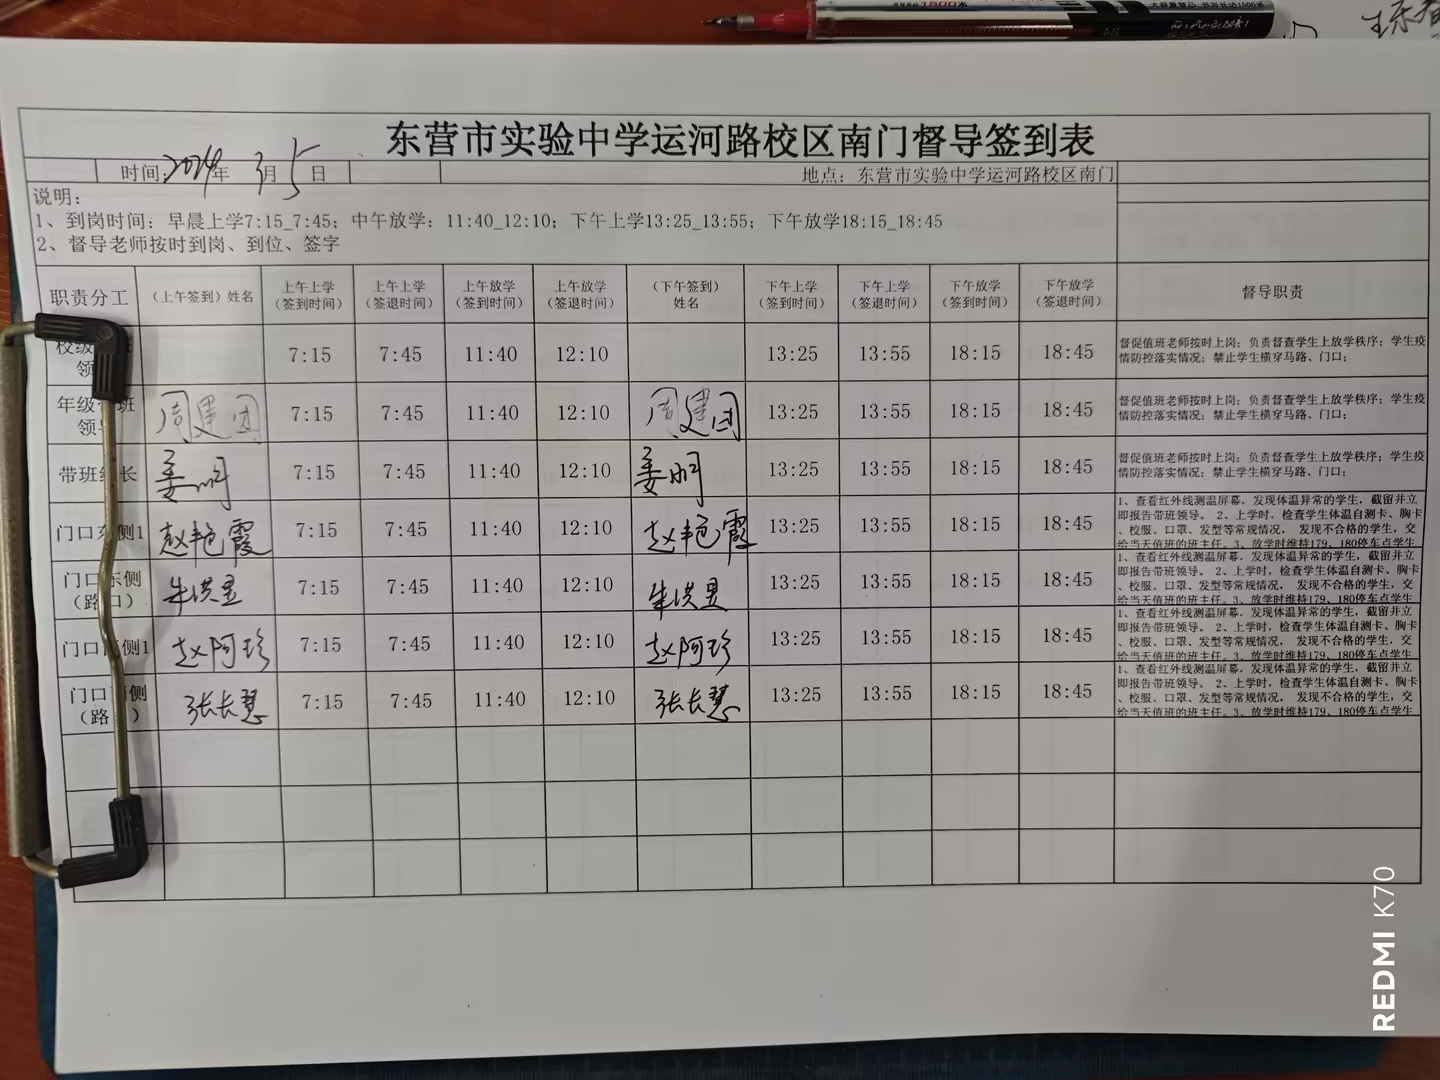 东营市实验中学运河路校区南门督导签到表
时间:2024年 3月5日 地点: 东营市实验中学运河路校区南门
说明:
1、到岗时间: 早晨上学7:15_7:45; 中午放学: 11:40_12:10; 下午上学13:25_13:55; 下午放学18:15_18:45
2、督导老师按时到岗、到位、签字
职责分工 (上午签到) 姓名 上午上学(签到时间) 上午上学(签退时间) 上午放学(签到时间) 上午放学(签退时间) (下午签到)姓名 下午上学(签到时间) 下午上学(签退时间) 下午放学(签到时间) 下午放学(签退时间) 督导职责
校级 领 7:15 7:45 11:40 12:10 13:25 13:55 18:15 18:45 督促值班老师按时上岗; 负责督查学生上放学秩序; 学生疫情防控落实情况; 禁止学生横穿马路、门口;
年级 班领 周建团 7:15 7:45 11:40 12:10 周建团 13:25 13:55 18:15 18:45 督促值班老师按时上岗; 负责督查学生上放学秩序; 学生疫情防控落实情况; 禁止学生横穿马路、门口;
带班 长 姜明 7:15 7:45 11:40 12:10 姜明 13:25 13:55 18:15 18:45 督促值班老师按时上岗; 负责督查学生上放学秩序; 学生疫情防控落实情况; 禁止学生横穿马路、门口;
门口东侧1 赵艳霞 7:15 7:45 11:40 12:10 赵艳霞 13:25 13:55 18:15 18:45 1、查看红外线测温屏幕, 发现体温异常的学生, 截留并立即报告带班领导。 2、上学时, 检查学生体温自测卡、胸卡、校服、口罩、发型等常规情况, 发现不合格的学生, 交给当天值班的班主任。3、放学时维持179、180停车点学生
门口东侧(路口) 朱洪昱 7:15 7:45 11:40 12:10 朱洪昱 13:25 13:55 18:15 18:45 1、查看红外线测温屏幕, 发现体温异常的学生, 截留并立即报告带班领导。 2、上学时, 检查学生体温自测卡、胸卡、校服、口罩、发型等常规情况, 发现不合格的学生, 交给当天值班的班主任。3、放学时维持179、180停车点学生
门口 侧1 赵阿珍 7:15 7:45 11:40 12:10 赵阿珍 13:25 13:55 18:15 18:45 1、查看红外线测温屏幕, 发现体温异常的学生, 截留并立即报告带班领导。 2、上学时, 检查学生体温自测卡、胸卡、校服、口罩、发型等常规情况, 发现不合格的学生, 交给当天值班的班主任。3、放学时维持179、180停车点学生
门口 侧(路 ) 张长慧 7:15 7:45 11:40 12:10 张长慧 13:25 13:55 18:15 18:45 1、查看红外线测温屏幕, 发现体温异常的学生, 截留并立即报告带班领导。 2、上学时, 检查学生体温自测卡、胸卡、校服、口罩、发型等常规情况, 发现不合格的学生, 交给当天值班的班主任。3、放学时维持179、180停车点学生
REDMI K70